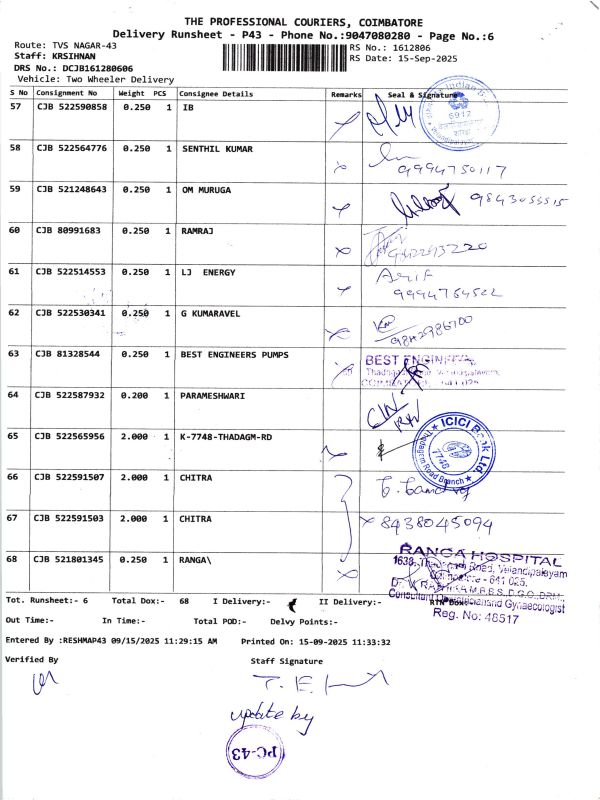 THE PROFESSIONAL COURIERS, COIMBATORE
Delivery Runsheet - P43 - Phone No.:9047080280 - Page No.:6
Route: TVS NAGAR-43
RS No.: 1612806
Staff: KRSIHNAN
RS Date: 15-Sep-2025
DRS No.: DCJB161280606
Vehicle: Two Wheeler Delivery
S No Consignment No Weight PCS Consignee Details Remarks Seal & Signature
57 CJB 522590858 0.250 1 IB
58 CJB 522564776 0.250 1 SENTHIL KUMAR
9994750117
59 CJB 521248643 0.250 1 OM MURUGA
9843055515
60 CJB 80991683 0.250 1 RAMRAJ
61 CJB 522514553 0.250 1 LJ ENERGY
Arif
9994764522
62 CJB 522530341 0.250 1 G KUMARAVEL
63 CJB 81328544 0.250 1 BEST ENGINEERS PUMPS
BEST
64 CJB 522587932 0.200 1 PARAMESHWARI
65 CJB 522565956 2.000 1 K-7748-THADAGM-RD
ICICI Bank Ltd.
Thadagam Road Branch
7748
66 CJB 522591507 2.000 1 CHITRA
67 CJB 522591503 2.000 1 CHITRA
8438045094
68 CJB 521801345 0.250 1 RANGA\
RANGA HOSPITAL
Road, Velandipalayam
641 025.
Gynaecologist
Reg. No: 48517
Tot. Runsheet:- 6 Total Dox:- 68 I Delivery:- II Delivery:-
Out Time:- In Time:- Total POD:- Delvy Points:-
Entered By :RESHMAP43 09/15/2025 11:29:15 AM Printed On: 15-09-2025 11:33:32
Verified By Staff Signature
update by
PC-43